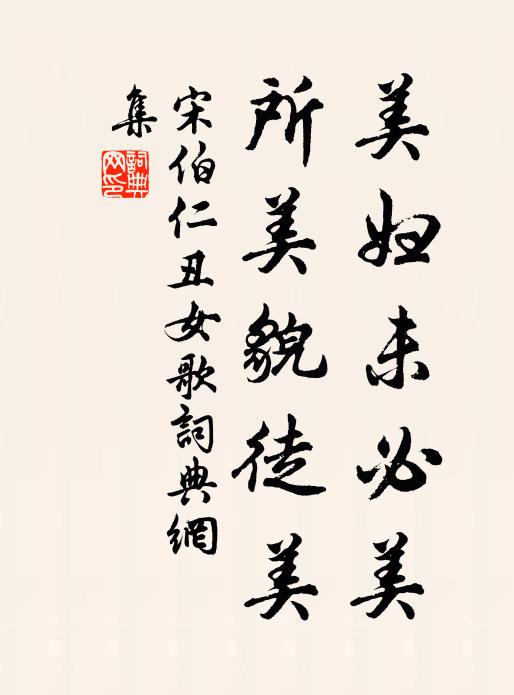 美妇未必美
所美貌徒美
宋伯仁丑女歌詞典網
集
詞典
网印